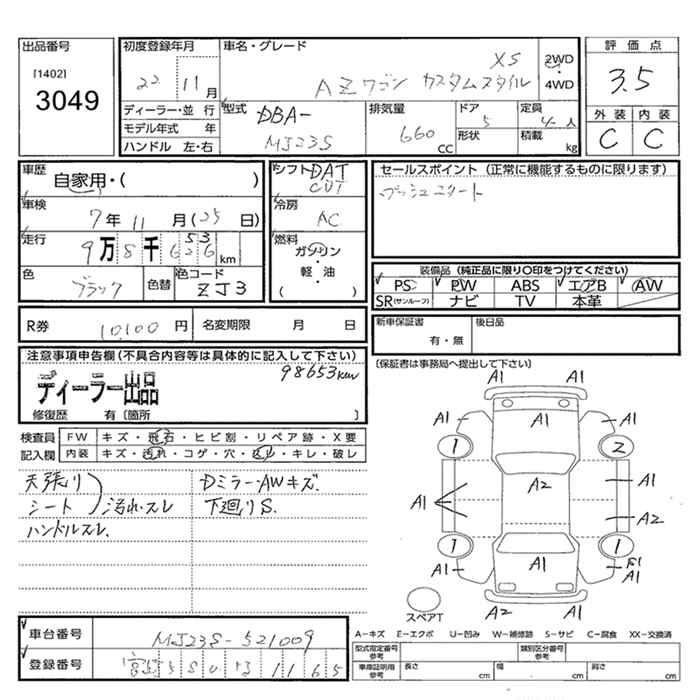 出品番号
[1402]
3049
初度登録年月
22 11月
車名・グレード
XS
AZワゴン カスタムスタイル
2WD
・
4WD
評価点
3.5
外装 内装
C C
ディーラー・並行
モデル年式 年
ハンドル 左・右
型式
DBA-
MJ23S
排気量
660
CC
ドア
5
形状
定員
4人
積載
kg
車歴
自家用・( )
シフト DAT
CVT
セールスポイント (正常に機能するものに限ります)
プッシュスタート
車検
7年 11月 (25日)
冷房
AC
走行
53
9万8千626km
燃料
ガソリン
・
軽・油
( )
色
ブラック
色替
色コード
ZJ3
装備品 (純正品に限り○印をつけてください)
PS PW ABS エアB AW
SR(サンルーフ) ナビ TV 本革
R券
10,100円
名変期限 月 日
新車保証書
有・無
後日品
注意事項申告欄(不具合内容等は具体的に記入して下さい)
98653km
ディーラー出品
修復歴 有〔箇所 〕
〔保証書は事務局へ提出して下さい〕
検査員
記入欄
FW キズ・飛石・ヒビ割・リペア跡・X要
内装 キズ・汚れ・コゲ・穴・スレ・キレ・破レ
天張り
シート 汚れ・スレ
ハンドルスレ.
DミラーAWキズ.
下廻りS.
A1 A1
A1 A1 A1
1 2
A1 A2 A1
A2
1 1
A1 A1
A1
スペアT
A2 A1
車台番号
MJ23S-521009
登録番号
1165
A-キズ E-エクボ U-凹み W-補修跡 S-サビ C-腐食 XX-交換済
型式指定番号
参考
類別区分番号
参考
車庫証明用
参考
長さ cm
幅 cm
高さ cm